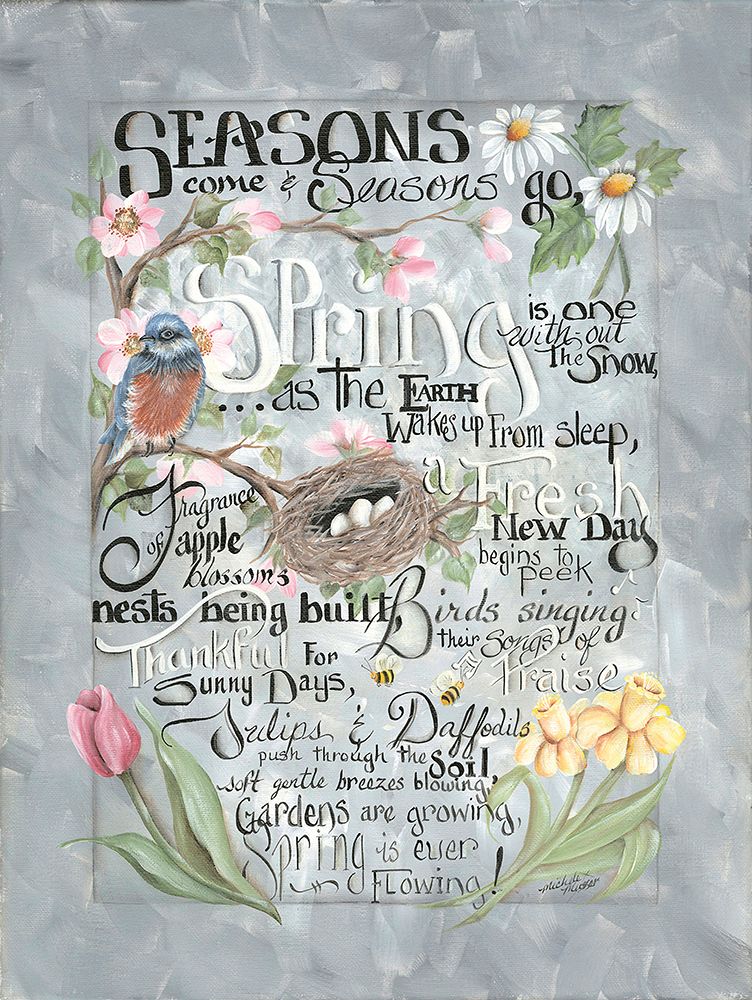 SEASONS
come & Seasons go,
Spring
is one
with-out
the Snow,
...as the EARTH
Wakes up From sleep,
a Fresh
New Day
begins to
peek
Fragrance
of apple
blossoms
nests being built,
Birds singing
their Songs of
Praise
Thankful For
Sunny Days,
Tulips & Daffodils
push through the Soil,
soft gentle breezes blowing,
Gardens are growing,
Spring is ever
Flowing!
Michele Musser